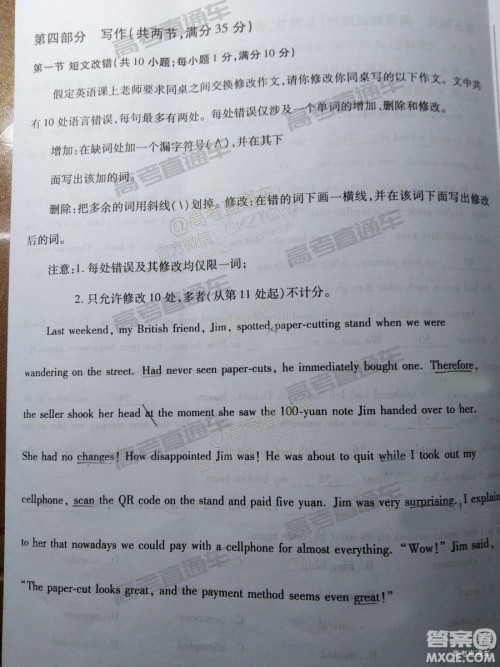 第四部分 写作(共两节,满分 35 分)
第一节 短文改错(共 10 小题;每小题 1 分,满分 10 分)
假定英语课上老师要求同桌之间交换修改作文,请你修改你同桌写的以下作文。文中共
有 10 处语言错误,每句最多有两处。每处错误仅涉及一个单词的增加、删除和修改。
增加:在缺词处加一个漏字符号(∧),并在其下
面写出该加的词。
删除:把多余的词用斜线(\)划掉。修改:在错的词下画一横线,并在该词下面写出修改
后的词。
注意:1. 每处错误及其修改均仅限一词;
2. 只允许修改 10 处,多者(从第 11 处起)不计分。
Last weekend, my British friend, Jim, spotted paper-cutting stand when we were
wandering on the street. Had never seen paper-cuts, he immediately bought one. Therefore,
the seller shook her head at the moment she saw the 100-yuan note Jim handed over to her.
She had no changes! How disappointed Jim was! He was about to quit while I took out my
cellphone, scan the QR code on the stand and paid five yuan. Jim was very surprising. I explain
to her that nowadays we could pay with a cellphone for almost everything. “Wow!” Jim said,
“The paper-cut looks great, and the payment method seems even great!”
高考直通车
高考直通车
官方微信：GKZTCWX
高考直通车
答案圈
MXQE.COM